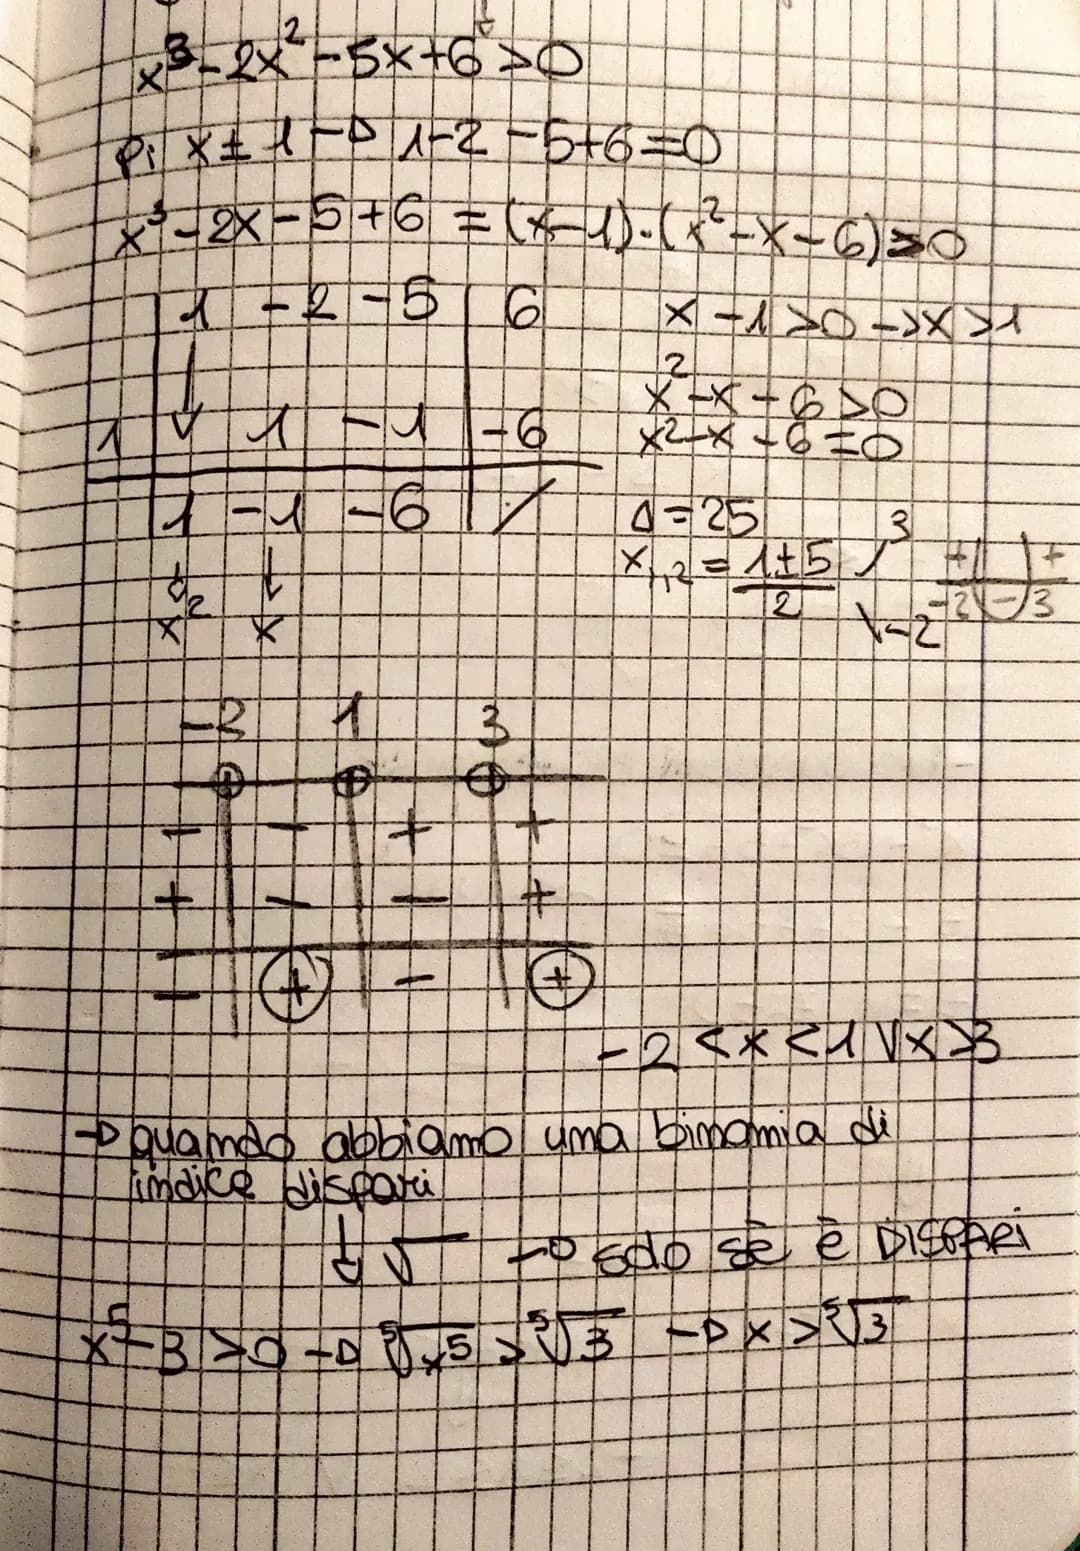 x³-2x²-5x+6>0
Pi x±1 → 1-2-5+6=0
x³-2x-5+6 = (x-1)·(x²-x-6)>0
1 -2 -5 6
1 1 -1 -6
1 -1 -6 /
x² x
x-1>0 → x>1
x²-x-6>0
x²-x-6=0
Δ=25
x₁,₂ = 1±5/2 3
-2
+ - +
-2 3
-2 1 3
- - + +
+ - - +
- + - +
-2<x<1 V x>3
→ quando abbiamo una binomia di
indice dispari
↓ √ → solo se è DISPARI
x⁵-3>0 → ⁵√x⁵ > ⁵√3 → x>⁵√3